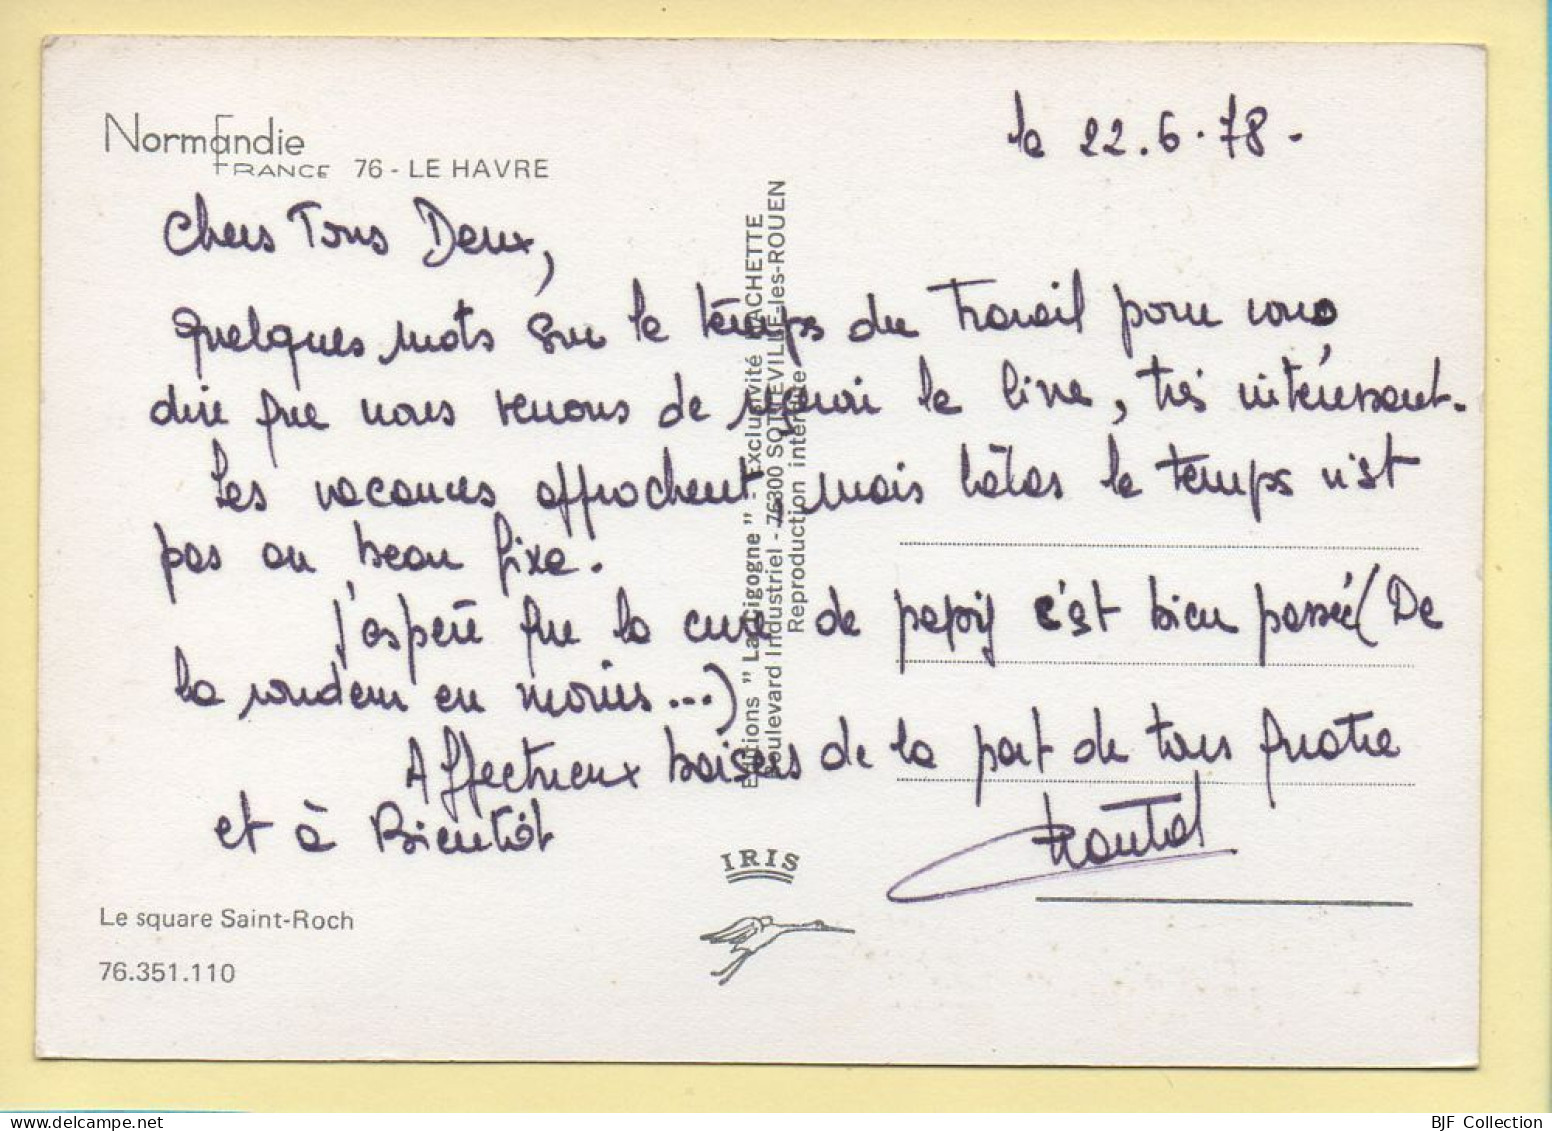 NormandiE
FRANCE 76 - LE HAVRE
le 22.6.78 -
Chers Tous Deux,
quelques mots sur le temps du Travail pour vous
dire que nous venons de recevoir le livre, très intéressant.
Les vacances approchent, mais hélas le temps n'est
pas au beau fixe.
J'espère que la cure de papy s'est bien passée (De
la rondeur en moins...)
Affectueux baisers de la part de tous quatre
et à Bientôt
Chantal
Editions " La Cigogne " - Exclusivité HACHETTE
Boulevard Industriel - 76300 SOTTEVILLE-les-ROUEN
Reproduction interdite
IRIS
Le square Saint-Roch
76.351.110
BJF Collection